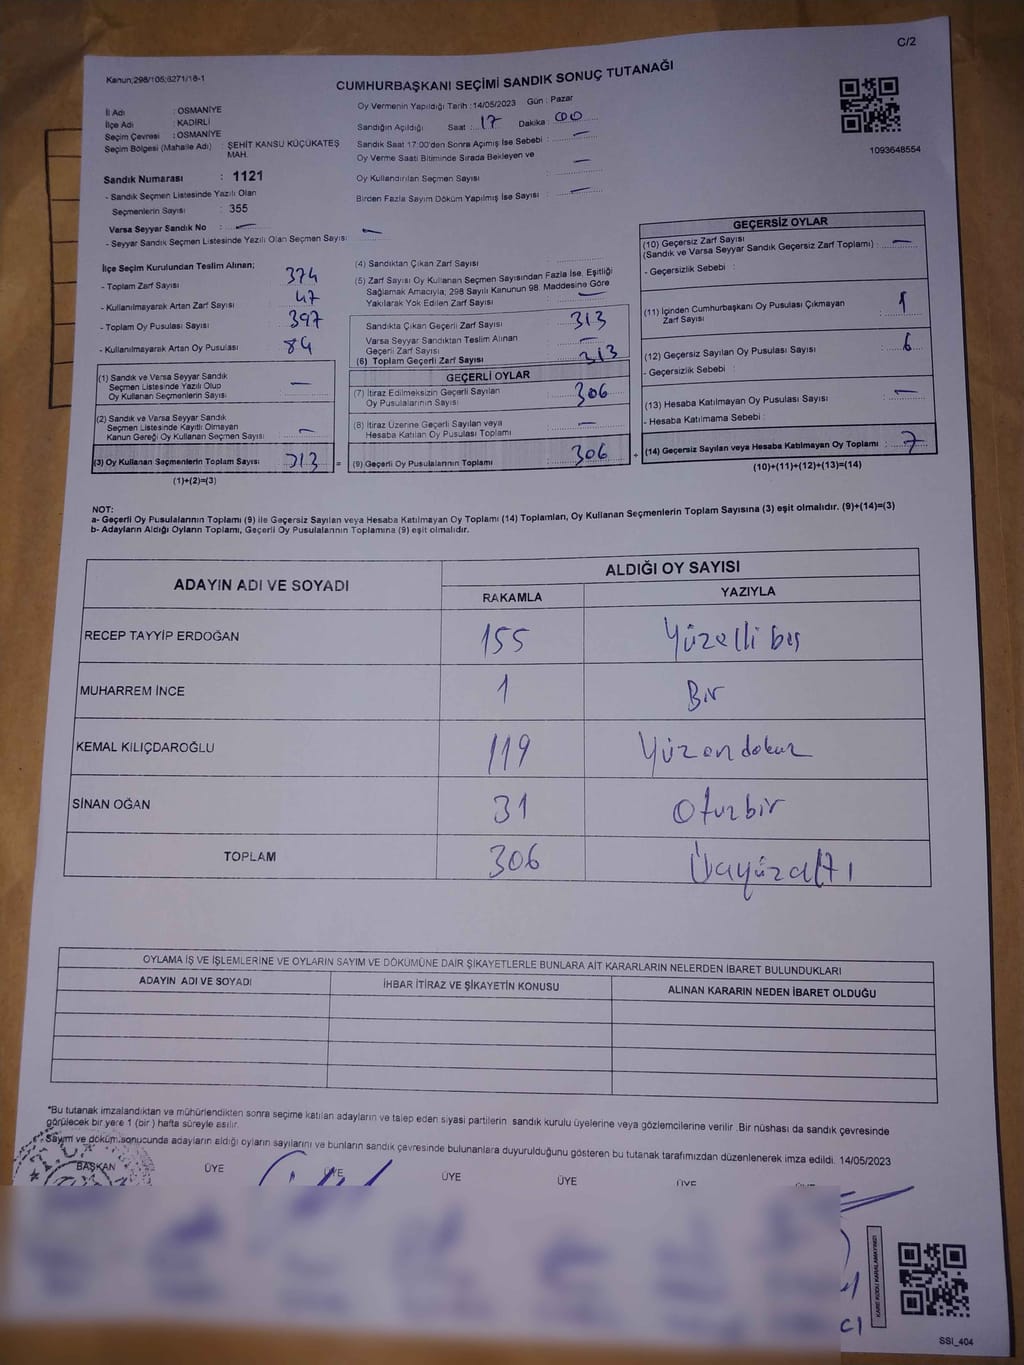 C/2
Kanun;298/105;6271/16-1
CUMHURBAŞKANI SEÇİMİ SANDIK SONUÇ TUTANAĞI
İl Adı : OSMANİYE
İlçe Adı : KADİRLİ
Seçim Çevresi : OSMANİYE
Seçim Bölgesi (Mahalle Adı) : ŞEHİT KANSU KÜÇÜKATEŞ
MAH.
Sandık Numarası : 1121
- Sandık Seçmen Listesinde Yazılı Olan
Seçmenlerin Sayısı : 355
Varsa Seyyar Sandık No : —
- Seyyar Sandık Seçmen Listesinde Yazılı Olan Seçmen Sayısı : —
Oy Vermenin Yapıldığı Tarih : 14/05/2023 Gün : Pazar
Sandığın Açıldığı Saat : 17 Dakika : 00
Sandık Saat 17:00'den Sonra Açımış İse Sebebi : —
Oy Verme Saati Bitiminde Sırada Bekleyen ve
Oy Kullandırılan Seçmen Sayısı : —
Birden Fazla Sayım Döküm Yapılmış İse Sayısı : —
1093648554
İlçe Seçim Kurulundan Teslim Alınan;
- Toplam Zarf Sayısı : 374
- Kullanılmayarak Artan Zarf Sayısı : 47
- Toplam Oy Pusulası Sayısı : 397
- Kullanılmayarak Artan Oy Pusulası : 84
(1) Sandık ve Varsa Seyyar Sandık
Seçmen Listesinde Yazılı Olup
Oy Kullanan Seçmenlerin Sayısı : —
(2) Sandık ve Varsa Seyyar Sandık
Seçmen Listesinde Kayıtlı Olmayan
Kanun Gereği Oy Kullanan Seçmen Sayısı : —
(3) Oy Kullanan Seçmenlerin Toplam Sayısı : 313
(1)+(2)=(3)
(4) Sandıktan Çıkan Zarf Sayısı :
(5) Zarf Sayısı Oy Kullanan Seçmen Sayısından Fazla İse, Eşitliği
Sağlamak Amacıyla; 298 Sayılı Kanunun 98. Maddesine Göre
Yakılarak Yok Edilen Zarf Sayısı : —
Sandıkta Çıkan Geçerli Zarf Sayısı : 313
Varsa Seyyar Sandıktan Teslim Alınan
Geçerli Zarf Sayısı : —
(6) Toplam Geçerli Zarf Sayısı : 313
GEÇERLİ OYLAR
(7) İtiraz Edilmeksizin Geçerli Sayılan
Oy Pusulalarının Sayısı : 306
(8) İtiraz Üzerine Geçerli Sayılan veya
Hesaba Katılan Oy Pusulası Toplamı : —
= (9) Geçerli Oy Pusulalarının Toplamı : 306
GEÇERSİZ OYLAR
(10) Geçersiz Zarf Sayısı
(Sandık ve Varsa Seyyar Sandık Geçersiz Zarf Toplamı) : —
- Geçersizlik Sebebi :
(11) İçinden Cumhurbaşkanı Oy Pusulası Çıkmayan
Zarf Sayısı : 1
(12) Geçersiz Sayılan Oy Pusulası Sayısı : 6
- Geçersizlik Sebebi :
(13) Hesaba Katılmayan Oy Pusulası Sayısı : —
- Hesaba Katılmama Sebebi :
+ (14) Geçersiz Sayılan veya Hesaba Katılmayan Oy Toplamı : 7
(10)+(11)+(12)+(13)=(14)
NOT:
a- Geçerli Oy Pusulalarının Toplamı (9) ile Geçersiz Sayılan veya Hesaba Katılmayan Oy Toplamı (14) Toplamları, Oy Kullanan Seçmenlerin Toplam Sayısına (3) eşit olmalıdır. (9)+(14)=(3)
b- Adayların Aldığı Oyların Toplamı, Geçerli Oy Pusulalarının Toplamına (9) eşit olmalıdır.
ADAYIN ADI VE SOYADI
ALDIĞI OY SAYISI
RAKAMLA YAZIYLA
RECEP TAYYİP ERDOĞAN 155 Yüzelli beş
MUHARREM İNCE 1 Bir
KEMAL KILIÇDAROĞLU 119 Yüzondokuz
SİNAN OĞAN 31 Otuzbir
TOPLAM 306 Üçyüzaltı
OYLAMA İŞ VE İŞLEMLERİNE VE OYLARIN SAYIM VE DÖKÜMÜNE DAİR ŞİKAYETLERLE BUNLARA AİT KARARLARIN NELERDEN İBARET BULUNDUKLARI
ADAYIN ADI VE SOYADI İHBAR İTİRAZ VE ŞİKAYETİN KONUSU ALINAN KARARIN NEDEN İBARET OLDUĞU
*Bu tutanak imzalandıktan ve mühürlendikten sonra seçime katılan adayların ve talep eden siyasi partilerin sandık kurulu üyelerine veya gözlemcilerine verilir .Bir nüshası da sandık çevresinde
görülecek bir yere 1 (bir ) hafta süreyle asılır.
Sayım ve döküm sonucunda adayların aldığı oyların sayılarını ve bunların sandık çevresinde bulunanlara duyurulduğunu gösteren bu tutanak tarafımızdan düzenlenerek imza edildi. 14/05/2023
BAŞKAN ÜYE ÜYE ÜYE ÜYE ÜYE
KARE KODU KARALAMAYINIZ!
SSI_404